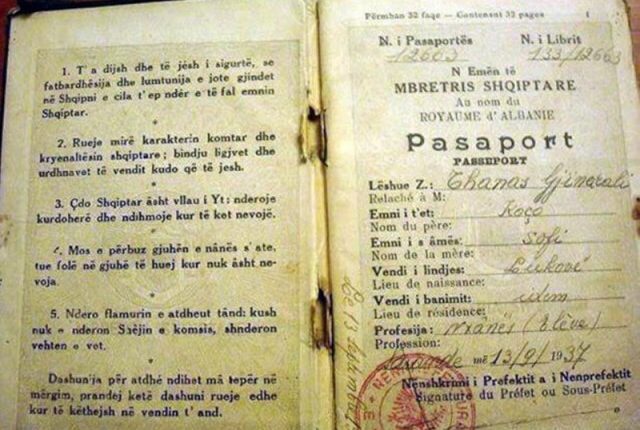 1. T' a dijsh dhe të jësh i sigurtë, se
fatbardhësija dhe lumtunija e jote gjindet
në Shqipni e cila t'ep ndër e të fal emnin
Shqiptar.
2. Rueje mirë karakterin komtar dhe
kryenaltësin shqiptare; bindju ligjvet dhe
urdhnavet të vendit kudo që të jesh.
3. Çdo Shqiptar âsht vllau i Yt: nderoje
kurdoherë dhe ndihmoje kur të ket nevojë.
4. Mos e përbuz gjuhën e nânës s'ate,
tue folë në gjuhë të huej kur nuk âsht ne-
voja.
5. Ndero flamurin e atdheut tând: kush
nuk e nderon Shêjin e komsis, shnderon
vehten e vet.
Dashunija për atdhé ndihet mâ tepër në
mërgim, prandej ketë dashuni rueje edhe
kur të këthejsh në vendin t'and.
Përmban 32 faqe — Contenant 32 pages 1
N. i Pasaportës N. i Librit
12663 133/12663
N Emën të
MBRETRIS SHQIPTARE
Au nom du
ROYAUME d'ALBANIE
Pasaport
PASSEPORT
Lëshue Z.: Thanas Gjinerali
Relaché à M:
Emni i t'et: Koço
Nom du père:
Emni i s âmës: Sofi
Nom de la mère:
Vendi i lindjes: Lukovë
Lieu de naissance:
Vendi i banimit: idem
Lieu de résidence:
Profesija: nxanës (Elève)
Profession:
më 13/9/1937
Nënshkrimi i Prefektit a i Nenprefektit
Signature du Préfet ou Sous-Préf
Le 13 septembre